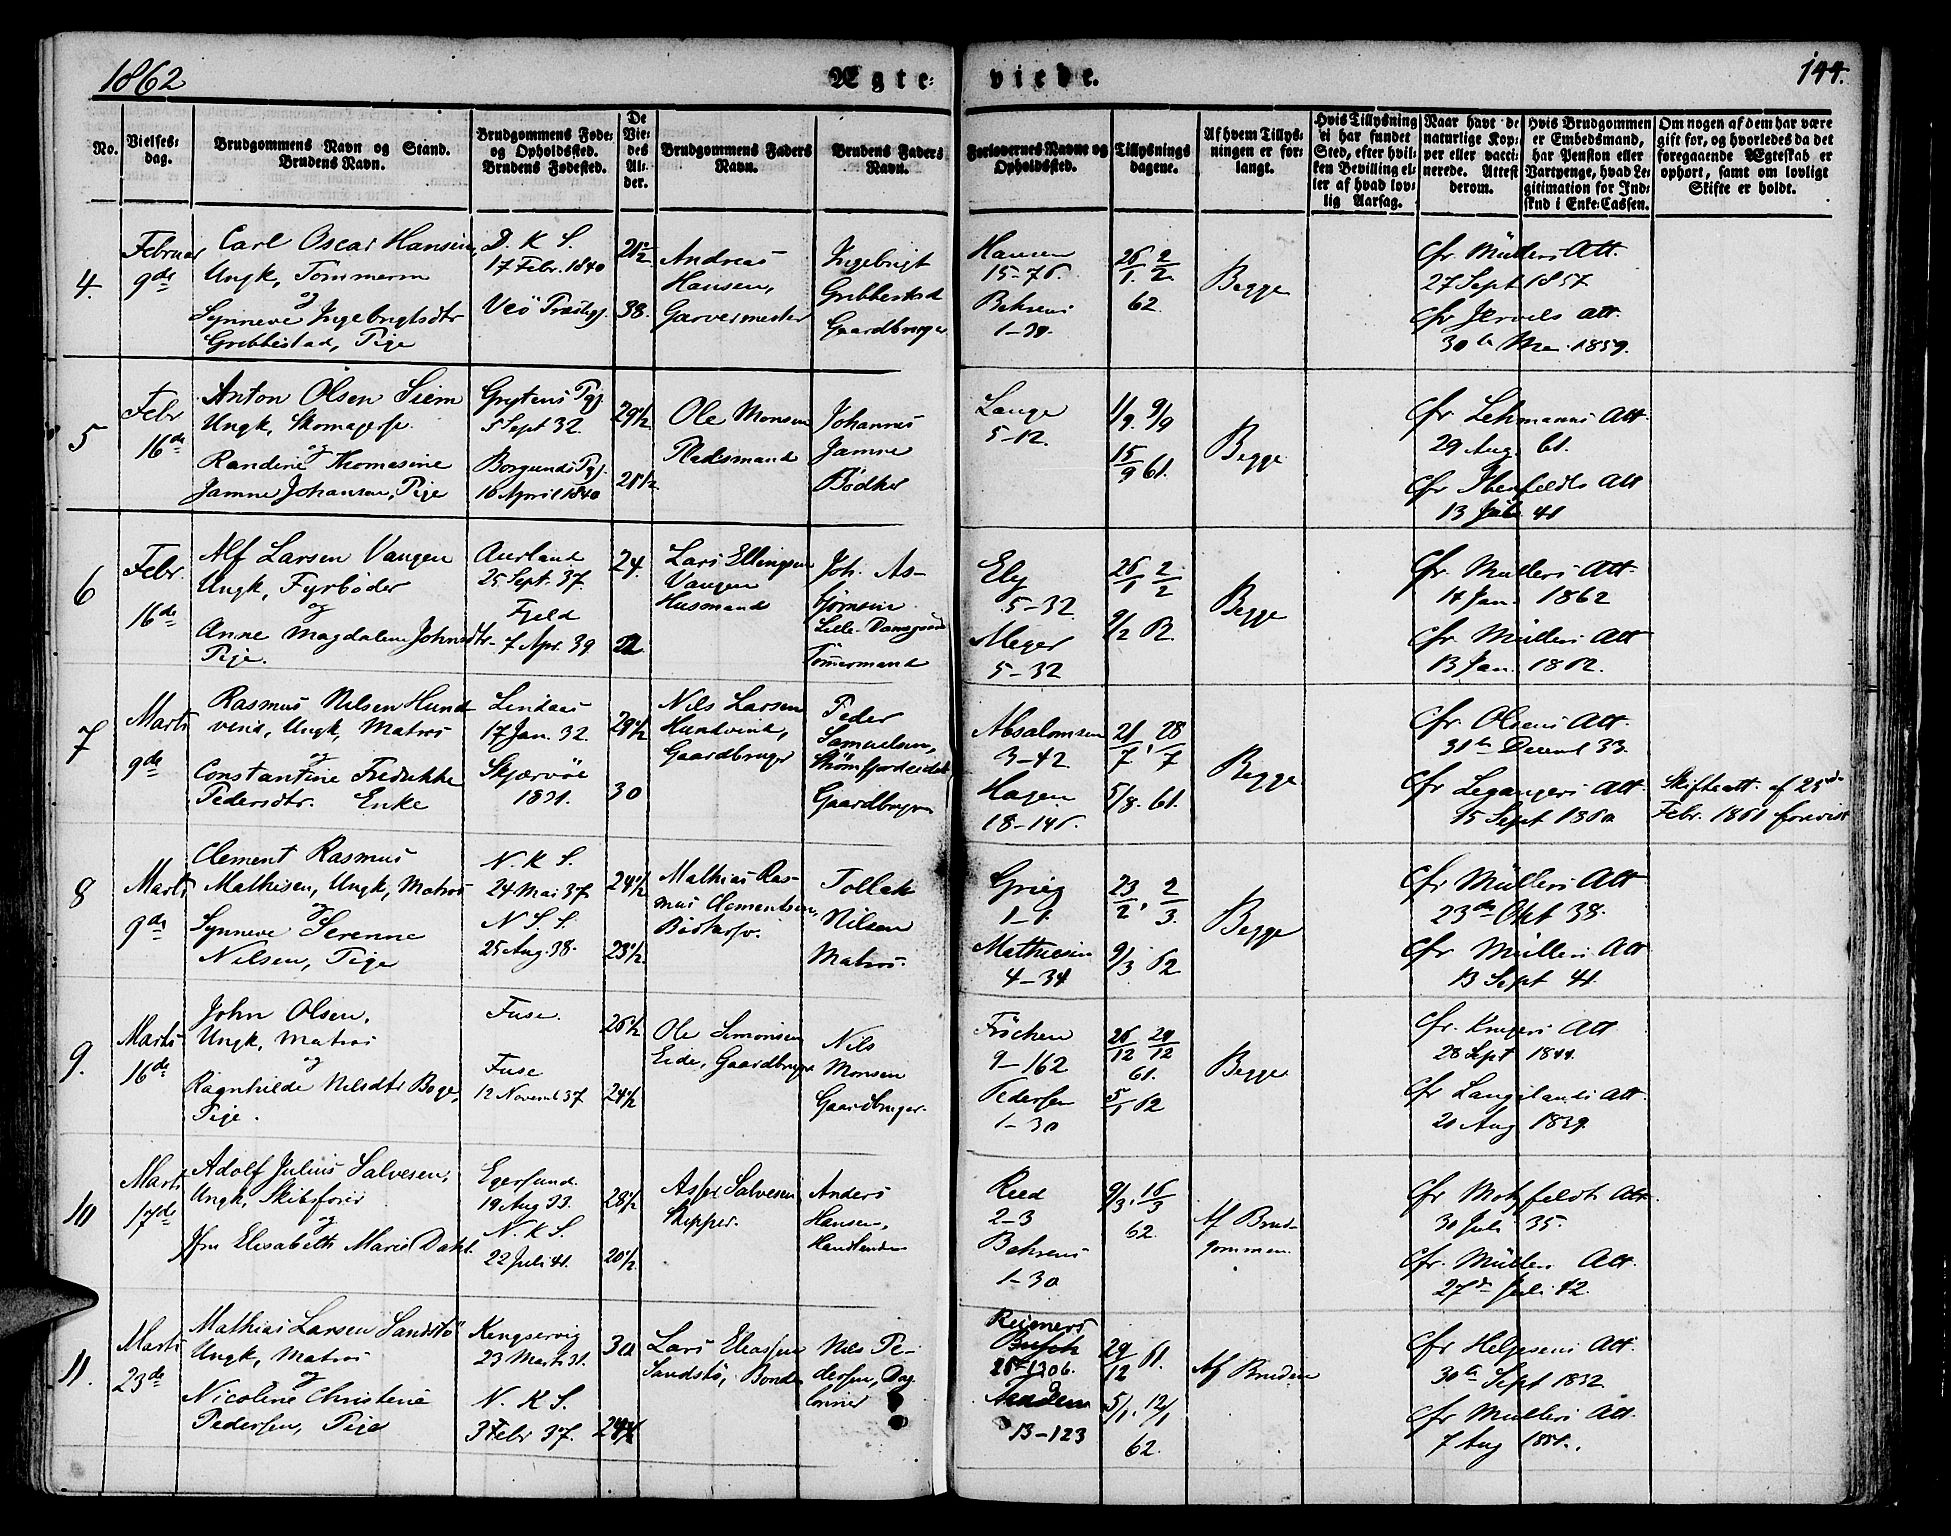 1862
Ægte:
viede.
144.
No.
Vielses-
dag.
Brudgommens Navn og Stand.
Brudens Navn.
Brudgommens Føde-
og Opholdssted.
Brudens Fødested.
De
Vie-
des
Al-
der.
Brudgommens Faders
Navn.
Brudens Faders
Navn.
Forlovernes Navne og
Opholdssted.
Tillysnings
dagene.
Af hvem Tillys-
ningen er for-
langt.
Hvis Tillysning
ei har fundet
Sted, efter hvil-
ken Bevilling el-
ler af hvad lov-
lig Aarsag.
Naar havt de
naturlige Kop-
per eller vacci-
nerede. Attest
derom.
Hvis Brudgommen
er Embedsmand,
har Pension eller
Vartpenge, hvad Le-
gitimation for Ind-
skud i Enke-Cassen.
Om nogen af dem har være
gift før, og hvorledes da det
foregaaende Ægteskab er
ophørt, samt om lovligt
Skifte er holdt.
4.
Februar
9de
Carl Oscar Hansen,
Ungk, Tømmerm
og
Synneve Ingebrigtsdtr
Grebbestad, Pige
D. K S.
17 Febr. 1840
Veö Præstgj.
21 1/2
38.
Andreas
Hansen,
Garvermester
Ingebrigt
Grebbestad
Gaardbruger
Hansen
15-76.
Behrens
1-30.
26/1. 2/2.
62.
Begge
Cfr Müllers Att.
27 Sept 1857
Cfr Jervels Att.
30te Mai 1859.
5
Febr
16de
Anton Olsen Siem
Ungk, Skomagersv.
og
Randine Thomasine
Jamne Johansen, Pige
Grytens Pgj.
5 Sept 32.
Borgunds Pgj.
16 April 1840
29 1/2
21 1/2
Ole Monsen
Pladsmand
Johannes
Jamne
Bödker
Lange
5-12.
1/9. 9/9
15/9 61.
Begge
Cfr Lehmanns Att.
29 Aug. 61.
Cfr Ibenfeldts Att
13 Juli 41
6
Febr.
16de
Alf Larsen Vangen
Ungk, Fyrböder
og
Anne Magdalene Johnsdtr
Pige.
Aurland
25 Sept. 37.
Fjeld
7 Apr. 39
24.
22
Lars Ellingsen
Vangen
Husmand
Joh. As-
björnsen
Lille-Damsgaard
Tömmermand
Ely
5-32
Meyer
5-32
26/1 2/2
9/2 62.
Begge
Cfr. Müllers Att.
14 Jan. 1862
Cfr Müllers Att
13 Jan. 1862.
7
Marts
9de
Rasmus Nilsen Hund
vend, Ungk, Matros
og
Constantine Fredrikke
Pedersdtr. Enke
Lindaas
17 Jan. 32.
Skjærvöe
1831.
29 1/2
30
Nils Larsen
Hundvind,
Gaardbruger
Peder
Samuelsen,
Strömfjordeidet
Gaardbruger
Absalomsen
3-42
Hagen
18-146.
21/7, 28/7
5/8. 61.
Begge
Cfr Olsens Att.
31te Decemb 33.
Cfr Leganger's Att
15 Sept 1860
Skifteatt. af 25de
Febr. 1861 forevist
8
Marts
9de
Clement Rasmus
Mathisen, Ungk, Matros
og
Synneve Serenne
Nilsen, Pige
N. K S.
24 Mai 37
N. S. S.
25 Aug. 38.
24 1/2
23 1/2.
Mathias Ras-
mus Clementsen,
Tollak
Nilsen
Matros.
Grieg
1-1
Mathiesen
4-34
23/2, 2/3.
9/3 62
Begge
Cfr Müllers Att
23de Okt 38.
Cfr Müllers Att
13 Sept 41.
9.
Marts
16de
John Olsen,
Ungk, Matros
og
Ragnhilde Nilsdtr Boge,
Pige.
Fuse.
Fuse
12 Novemb 37
26 1/2
24 1/2
Ole Simonsen
Eide, Gaardbruger
Nils
Monsen
Gaardbruger.
Fröchen
9-162
Pedersen
1-30
26/12 29/12
61.
5/1 62
Begge
Cfr. Krügers Att
28 Sept 1844.
Cfr Langelands Att.
20 Aug 1839.
10
Marts
17de
Adolf Julius Salvesen,
Ungk, Skibsförer
og
Jfr Elisabeth Marie Dahl.
Egersund.
19 Aug 33.
N. K S.
22 Juli 41.
28 1/2
20 1/2.
Asser Salvesen
Skipper.
Anders
Hansen,
Handlende
Reed
2-3
Behrens
1-30
9/3. 16/3
62.
Af Brud-
gommen.
Cfr Motzfeldts Att.
30 Juli 35.
Cfr. Müllers Att.
27de Juli 42.
11.
Marts
23de
Mathias Larsen Sandstö
Ungk, Matros
og
Nicoline Christine
Pedersen, Pige
Kingservig
23 Marts 31.
N. K S.
3 Febr 37.
30
24 1/2
Lars Eliassen
Sandstö, Bonde
Nils Pe-
dersen, Dag
lønner
Reimers
13-123
29/12 61.
5/1. 12/1
62.
Af Bruden
Cfr Helgesens Att.
30te Sept 1832
Cfr Müllers Att.
7 Aug 1851.